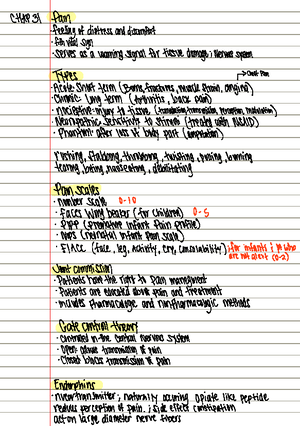 CHAP 31 Pain
- Feeling of distress and discomfort
- 5th vital sign
- Serves as a warning signal for tissue damage; Nervous system
Types → Chest Pain
- Acute: Short term (Burns, fractures, muscle strain, angina)
- Chronic: Long term (Arthritis, back pain)
- Nociceptive: injury to tissue (transduction, transmission, perception, modulation)
- Neuropathic: sensitivity to stimuli (treated with NSAID)
- Phantom: after loss of body part (amputation)
stabbing, throbbing, twisting, burning
tearing, boring, nauseating, debilitating
Pain scales
- Number scale 0-10
- FACES Wong Baker (for children) 0-5
- PIPP (Premature Infant Pain Profile)
- NIPS (neonatal infant pain scale)
- FLACC (face, leg, activity, cry, consolability) : for infants ; pt who are not alert (0-2)
Joint commission
- Patients have the right to pain management
- Patients are educated about pain and treatment
- includes pharmacologic and nonpharmacologic methods
Gate control theory
- controlled in the central nervous system
- Open: allows transmission of pain
- Closed: blocks transmission of pain
Endorphins
- neurotransmitter; naturally occuring opiate like peptide
reduces perception of pain. ; side effect constipation
act on large diameter nerve fibers